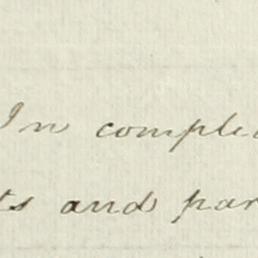 In comple
ts and par